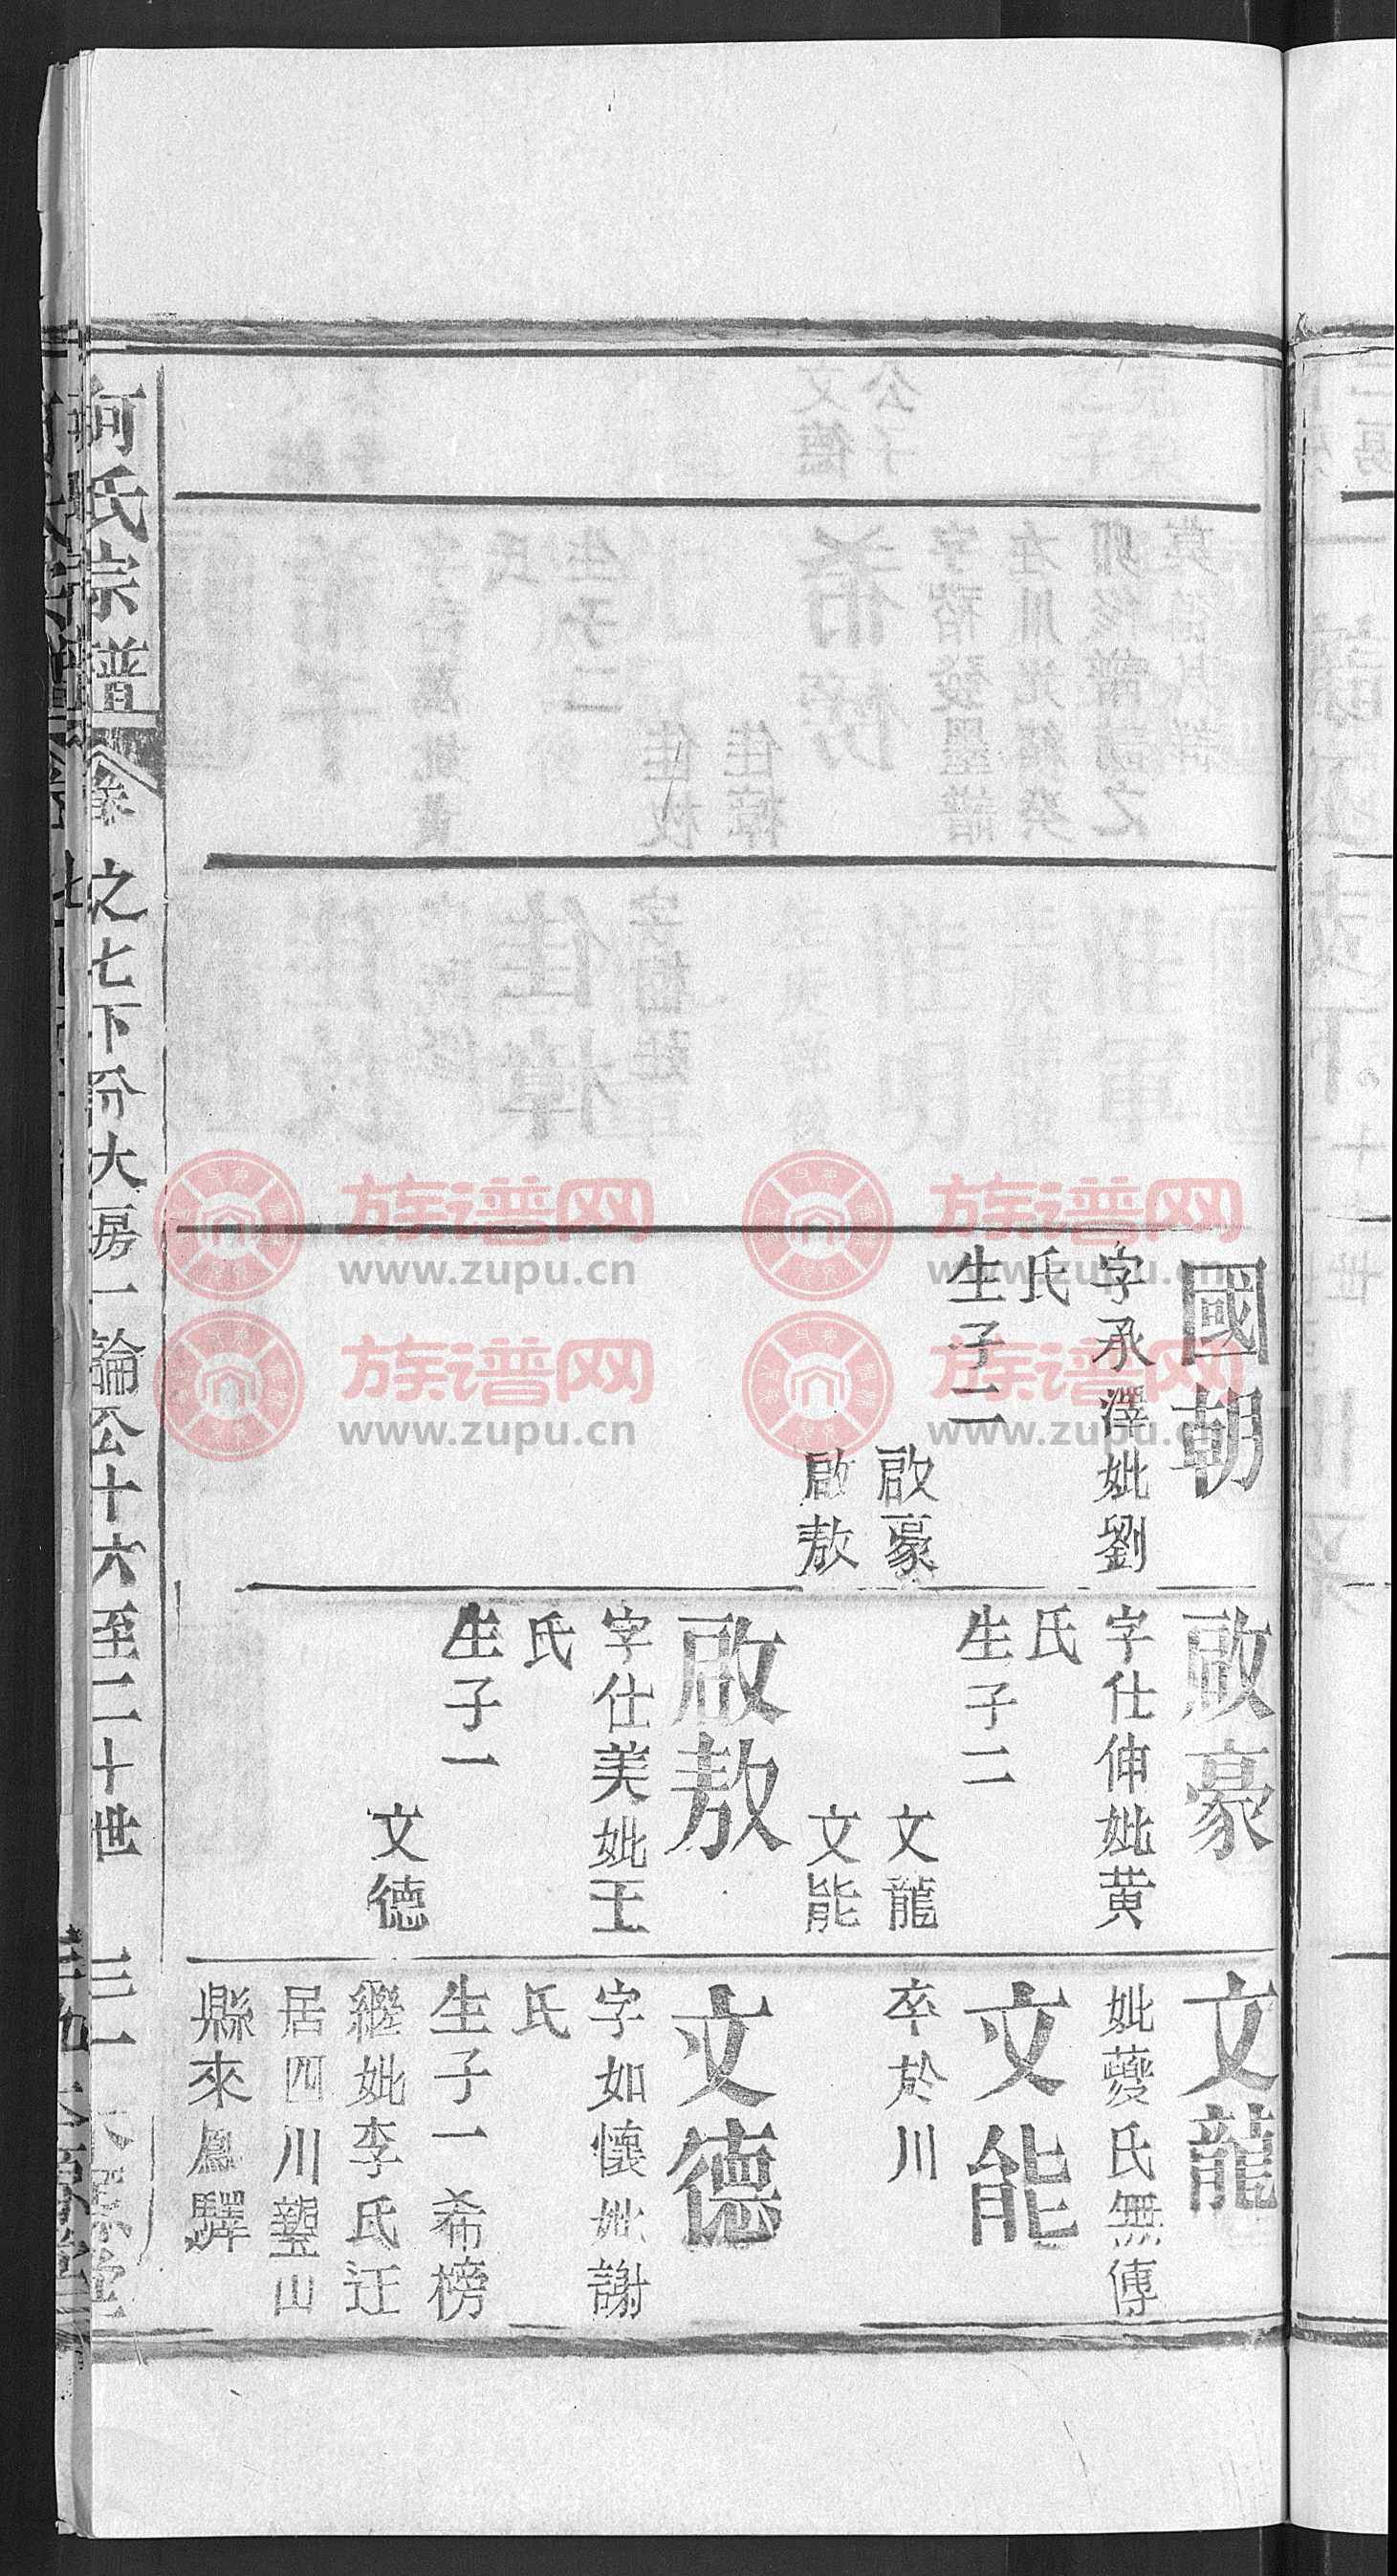 國朝
字承澤妣劉
氏
生子二
啟豪
啟敖
啟豪
字仕伸妣黄
氏
生子二
文龍
文能
啟敖
字仕美妣王
氏
生子一
文德
文龍
妣夔氏無傳
文能
卒於川
文德
字如懷妣謝
氏
生子一希榜
繼妣李氏迁
居四川璧山
縣來鳳驛
何氏宗譜
卷之七下分大房一論公十六至二十世
族谱网
www.zupu.cn
族谱网
www.zupu.cn
族谱网
www.zupu.cn
族谱网
www.zupu.cn